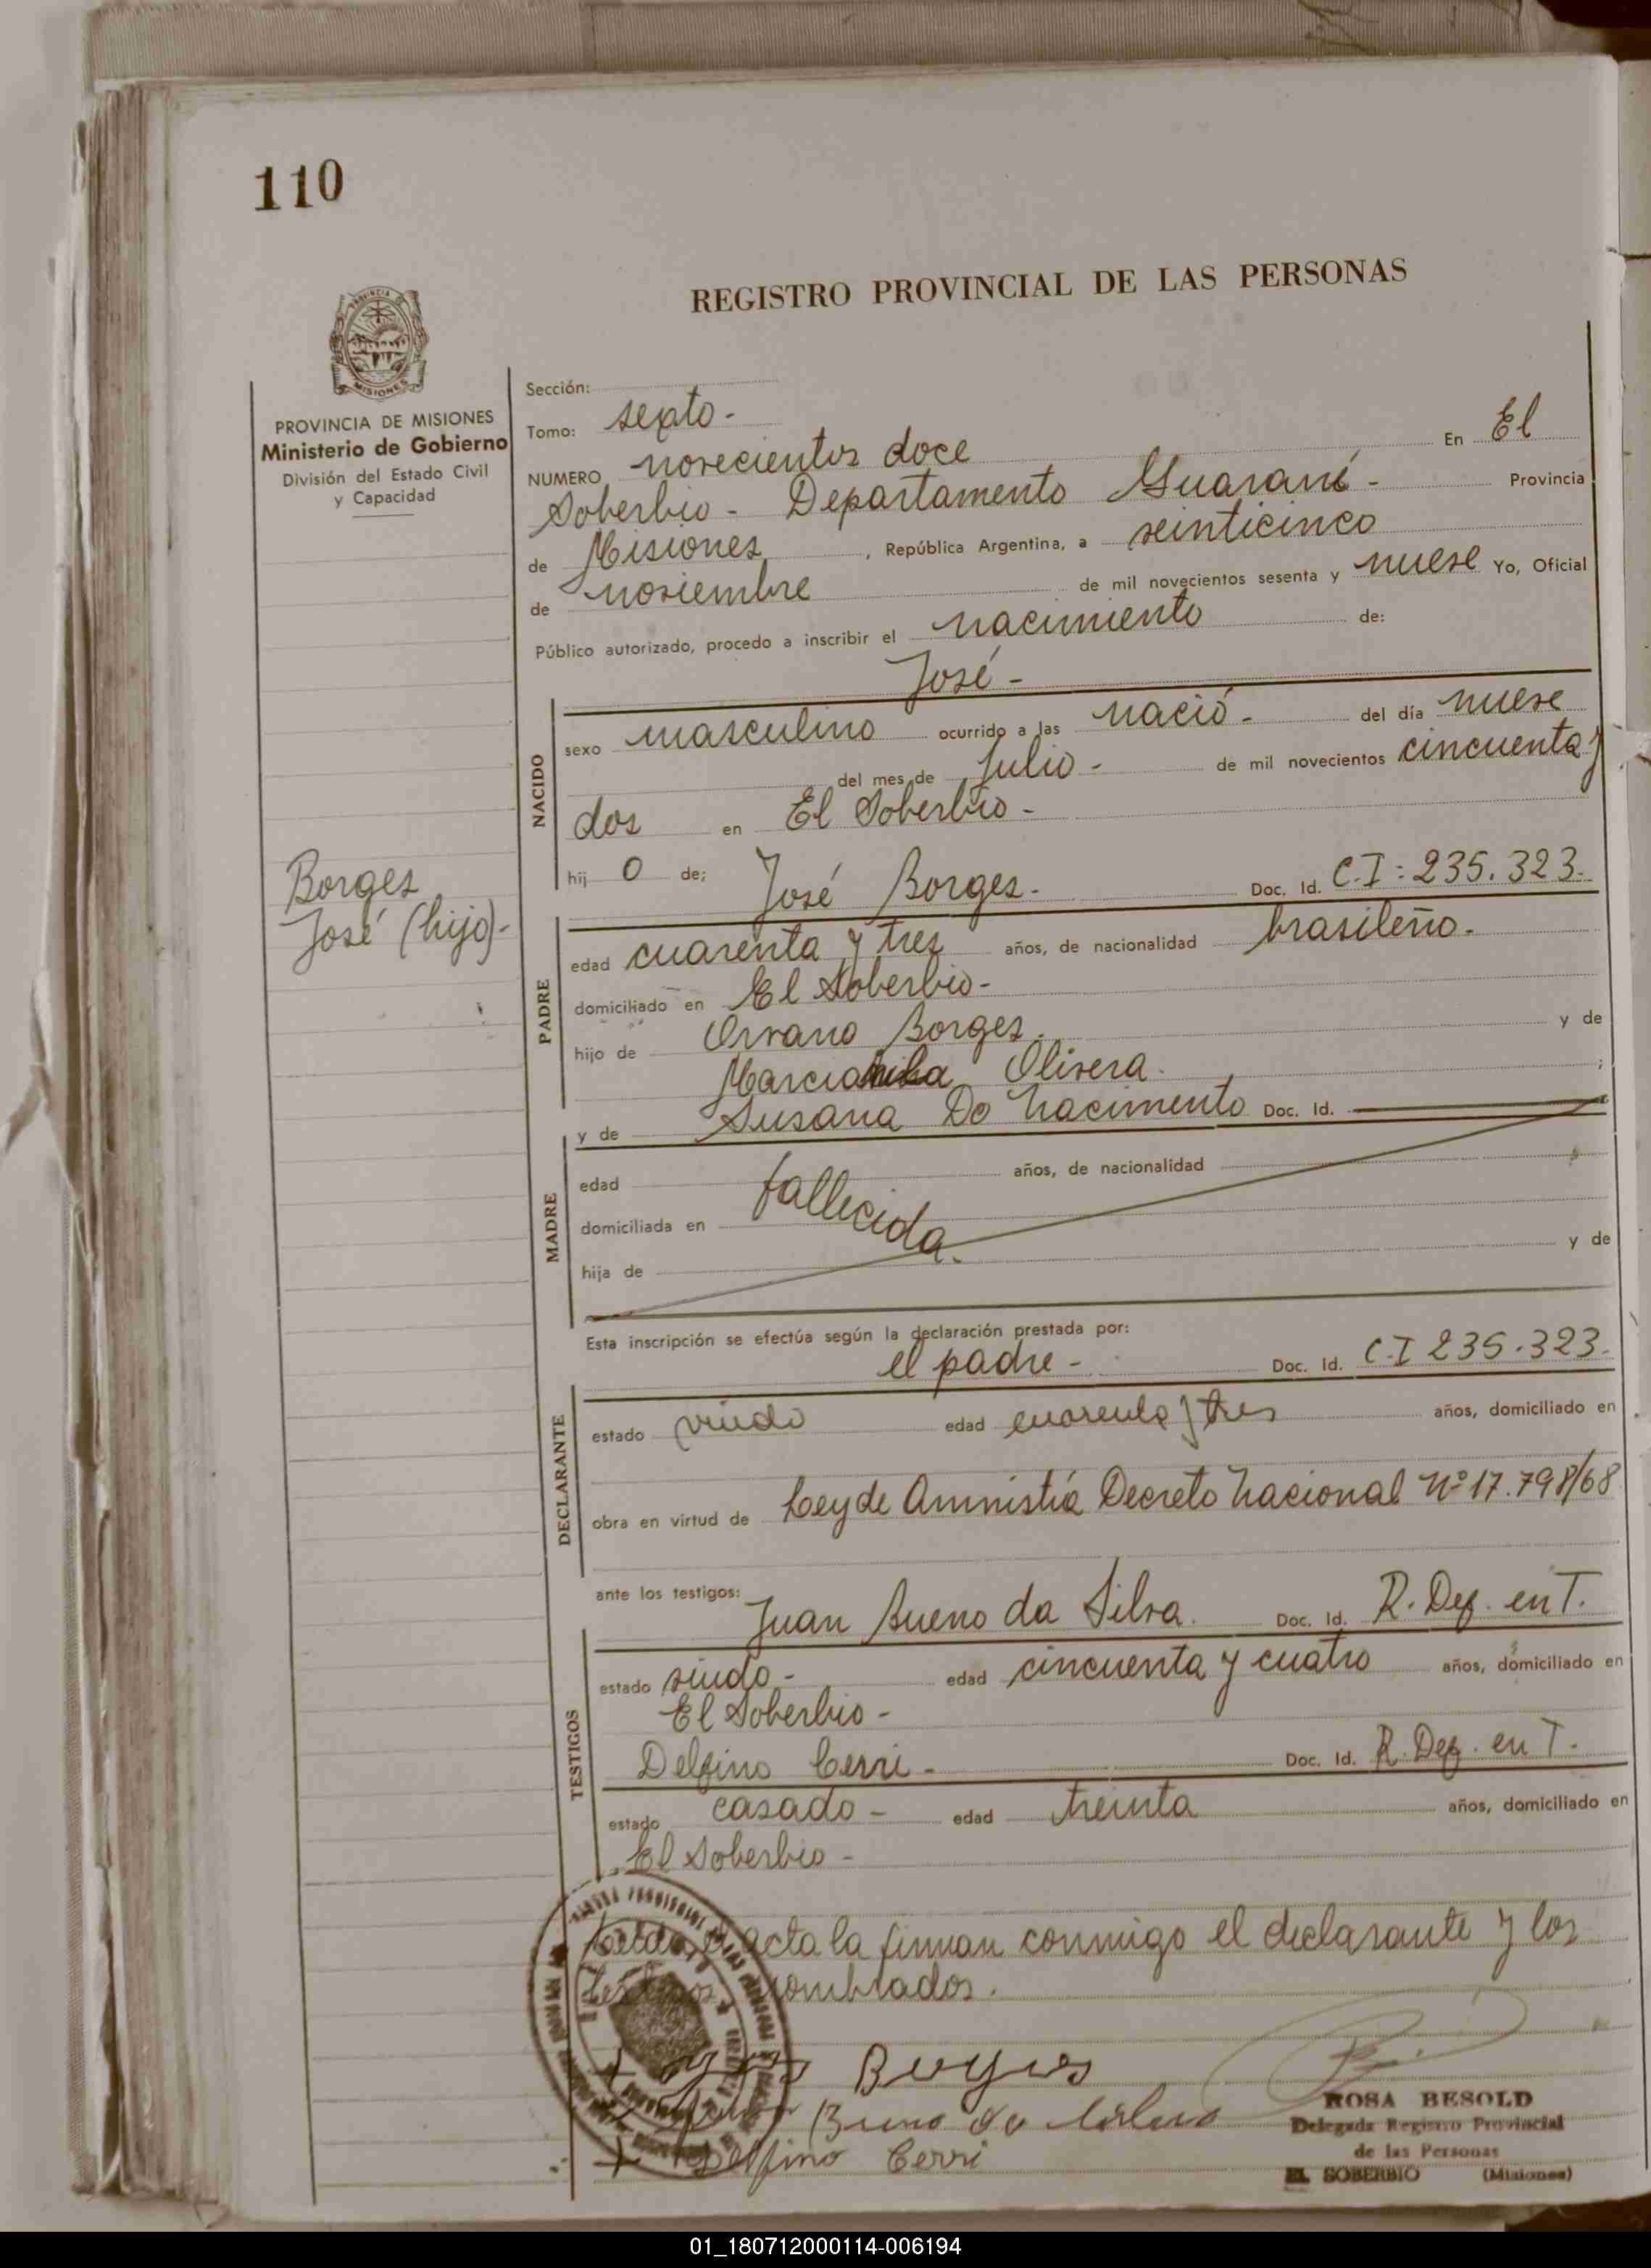 110
REGISTRO PROVINCIAL DE LAS PERSONAS
PROVINCIA DE MISIONES
Ministerio de Gobierno
División del Estado Civil
y Capacidad
Borges
José (hijo)-
Sección:
Tomo: sexto-
NUMERO novecientos doce En El
Soberbio - Departamento Guaraní - Provincia
de Misiones, República Argentina, a veinticinco
de noviembre de mil novecientos sesenta y nueve Yo, Oficial
Público autorizado, procedo a inscribir el nacimiento de:
José -
NACIDO
sexo masculino ocurrido a las nació - del día nueve
del mes de Julio - de mil novecientos cincuenta y
dos en El Soberbio -
hij o de; José Borges - Doc. Id. C.I: 235.323.
PADRE
edad cuarenta y tres años, de nacionalidad brasileño.
domiciliado en El Soberbio-
hijo de Orvano Borges. y de
Olivera. ;
y de Susana Do Nacimento Doc. Id.
MADRE
edad años, de nacionalidad
fallecida.
domiciliada en
hija de y de
Esta inscripción se efectúa según la declaración prestada por:
el padre - Doc. Id. C.I 235.323.
DECLARANTE
estado viudo edad cuarenta y tres años, domiciliado en
obra en virtud de Ley de Amnistía Decreto Nacional Nº 17.798/68
ante los testigos:
Juan Bueno da Silva. Doc. Id. R. Def. en T.
TESTIGOS
estado viudo - edad cincuenta y cuatro años, domiciliado en
El Soberbio -
Delfino Cerri - Doc. Id. R. Def. en T.
estado casado - edad treinta años, domiciliado en
El Soberbio -
Leída el acta la firman conmigo el declarante y los
testigos nombrados.
Borges
Delfino Cerri
ROSA BESOLD
Delegada Registro Provincial
de las Personas
EL SOBERBIO (Misiones)
01_180712000114-006194